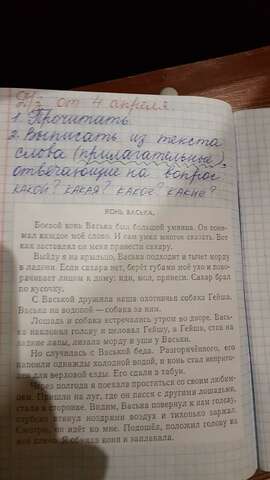 Д/з от 4 апреля.
1. Прочитать.
2. Выписать из текста
слова (прилагательные),
отвечающие на вопрос
КАКОЙ? КАКАЯ? КАКОЕ? КАКИЕ?
КОНЬ ВАСЬКА.
Боевой конь Васька был большой умница. Он пони-
мал каждое моё слово. И сам умел многое сказать. Вот
как заставлял он меня принести сахару.
Выйду я на крыльцо, Васька подходит и тычет морду
в ладони. Если сахара нет, берёт губами моё ухо и пово-
рачивает лицом к дому: иди, мол, принеси. Сахар брал
по кусочку.
С Васькой дружила наша охотничья собака Гейша.
Васька на водопой — собака за ним.
Лошадь и собака встречались утром во дворе. Вась-
ка наклонял голову и целовал Гейшу, а Гейша, стоя на
задние лапы, лизала морду и уши у Васьки.
Но случилась с Васькой беда. Разгорячённого, его
напоили однажды холодной водой, и конь стал непригод-
ден для верховой езды. Его сдали в табун.
Через полгода я поехала проститься со своим любим-
цем. Пришли на луг, где он пасся с другими лошадьми,
стали в сторонке. Видим, Васька повернул к нам голову,
глубоко втянул ноздрями воздух и тихонько заржал.
Смотрю, он идёт ко мне. Подошёл, положил голову на
моё плечо. Я обняла коня и заплакала.